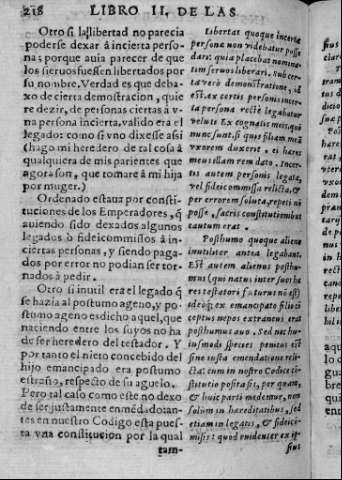 218 LIBRO II. DE LAS
Otro si la libertad no parecia
poderse dexar à incierta perso-
na; porque auia parecer de que
los sieruos fuessen libertados por
su nombre. Verdad es que deba-
xo de cierta demostracion, quie
re dezir, de personas ciertas à v-
na persona incierta, valido era el
legado: como si vno dixesse assi
(hago mi heredero de tal cosa à
qualquiera de mis parientes que
agora son, que tomare à mi hija
por muger.)
Ordenado estaua por consti-
tuciones de los Emperadores, q̃
auiendo sido dexados algunos
legados ò fideicommissos à in-
ciertas personas, y siendo paga-
dos por error no podian ser tor-
nados à pedir.
Otro si inutil era el legado q̃
se hazia al postumo ageno, y po-
stumo ageno es dicho aquel, que
naciendo entre los suyos no ha
de ser heredero del testador. Y
por tanto el nieto concebido del
hijo emancipado era postumo
estraño, respecto de su aguelo.
Pero tal caso como este no dexo
de ser justamente enmẽdado: an-
tes en nuestro Codigo esta pues-
ta vna constitucion por la qual
tam-
Libertas quoque incertæ
personæ non videbatur posse
dari: quia placebat nomina-
tim seruos liberari. Sub cer-
ta verò demonstratione, id
est, ex certis personis incer-
ta persona rectè legabatur
veluti Ex cognatis meis, qui
nunc sunt, si quis filiam meã
vxorem duxerit, ei heres
meus illam rem dato. Incer-
tis autem personis legata,
vel fideicommissa relicta, &
per errorem soluta, repeti nõ
posse, sacris constitutionibus
cautum erat.
Posthumo quoque alieno
inutiliter antea legabatur.
Est autem alienus posthu-
mus (qui natus inter suos he
res testatori futurus nõ est)
ideoq; ex emancipato filio cõ
ceptus nepos extraneus erat
posthumus auo. Sed nec hu-
iusmodi species penitus est
sine iusta emendatione relic-
ta: cum in nostro Codice cõ-
stitutio posita sit, per quam,
& huic parti medemur, non
solùm in hereditatibus, sed
etiam in legatis, & fideicõ-
missis: quod euidenter ex ip-
sius